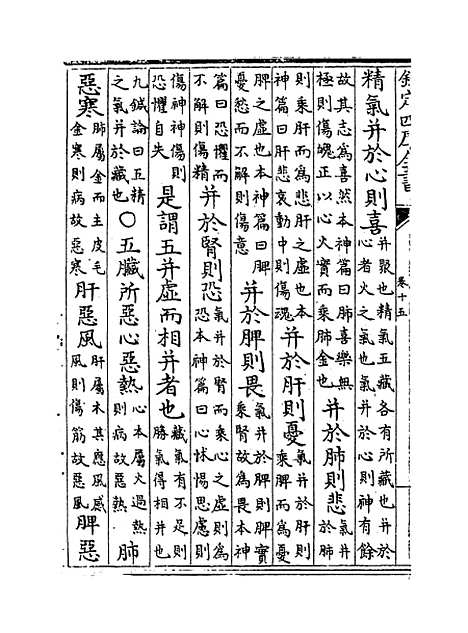 欽定四庫全書
卷十五
精氣并於心則喜并聚也精氣五藏各有所藏也并於心者火之精氣也氣并於心則神有餘
故其志為喜然本神篇曰肺喜樂無極則傷魄正以心火實而乘肺金也并於肺則悲氣并於肺
則乘肝而為悲肝之虛也本神篇曰肝悲哀動中則傷魂并於肝則憂氣并於肝則乘脾而為憂
脾之虛也本神篇曰脾憂愁而不解則傷意并於脾則畏氣并於脾則脾實乘腎故為畏本神
篇曰恐懼而不解則傷精并於腎則恐氣并於腎而乘心之虛則為恐本神篇曰心怵惕思慮則
傷神神傷則恐懼自失是謂五并虛而相并者也藏氣有不足則勝氣得相并也
九鍼論曰五精之氣并於藏也○五臟所惡心惡熱心本屬火過熱則病故惡熱肺
惡寒肺屬金而主皮毛金寒則病故惡寒肝惡風肝屬木其應風感風則傷筋故惡風脾惡